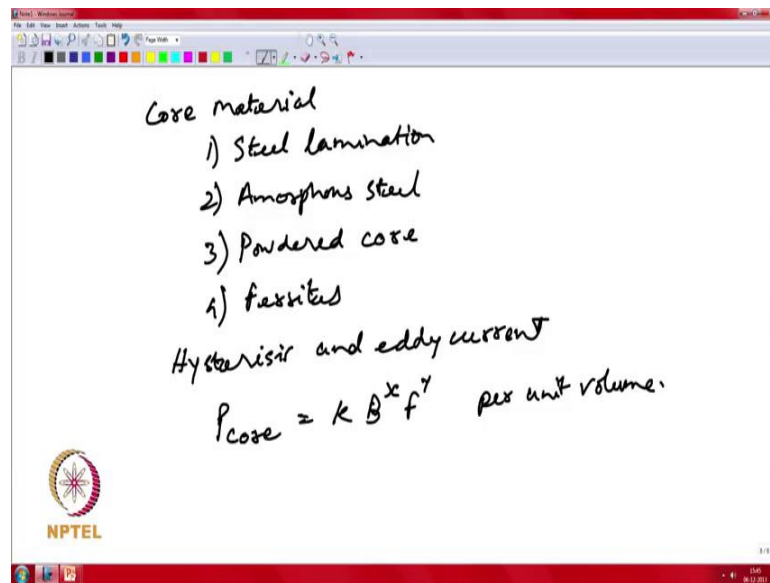 Note1 - Windows Journal
File Edit View Insert Actions Tools Help
Page Width
B I
Core material
1) Steel lamination
2) Amorphous steel
3) Powdered core
4) ferrites
Hysterisis and eddy current
P_core = k B^x f^y per unit volume.
NPTEL
3/3
15:45
06-12-2017